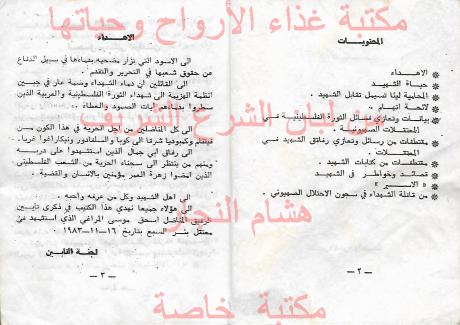 مكتبة غذاء الأرواح وحياتها
من لبان الشرع الشريف
هشام النجار
مكتبة خاصة
المحتويات
* الاهداء
* حياة الشهيد
* المحامية ليئا تسيمل تقابل الشهيد .
* لائحة اتهام ..
* بيانات وتعازي فصائل الثورة الفلسطينية في
المعتقلات الصهيونية .
* مقتطفات من رسائل وتعازي رفاق الشهيد في
المعتقلات .
* مقتطفات من كتابات الشهيد .
* قصائد وخواطر في الشهيد
* « الاسير »
* من قافلة الشهداء في سجون الاحتلال الصهيوني .
— ٢ —
الاهداء
الى الاسود التي تزأر مضحية بدماءها في سبيل الدفاع
عن حقوق شعبها في التحرير والتقدم .
الى القائلين ان دماء الشهداء وصمة عار في جبين
انظمة الهزيمة الى شهداء الثورة الفلسطينية والعربية الذين
سطروا بدماءهم آيات الصمود والعطاء ..
الى كل المناضلين من اجل الحرية في هذا الكون من
فيتنام وكمبوديا شرقا الى كوبا والسلفادور ونيكاراغوا غربا .
الى رفاق أبي جمال الذين استشهدوا على دربه
ومنهم من ينتظر الى سجناء الحرية من الشعب الفلسطيني
الذين امضوا زهرة العمر مؤمنين بالانسان والقضية .
الى اهل الشهيد وكل من عرفه واحبه .
الى هؤلاء جميعا نهدي هذا الكتيب في ذكرى تأبين
الرفيق المناضل اسحق موسى المراغي الذي استشهد في
معتقل بئر السبع بتاريخ ١٦-١١-١٩٨٣ .
لجنة التأبين
— ٣ —